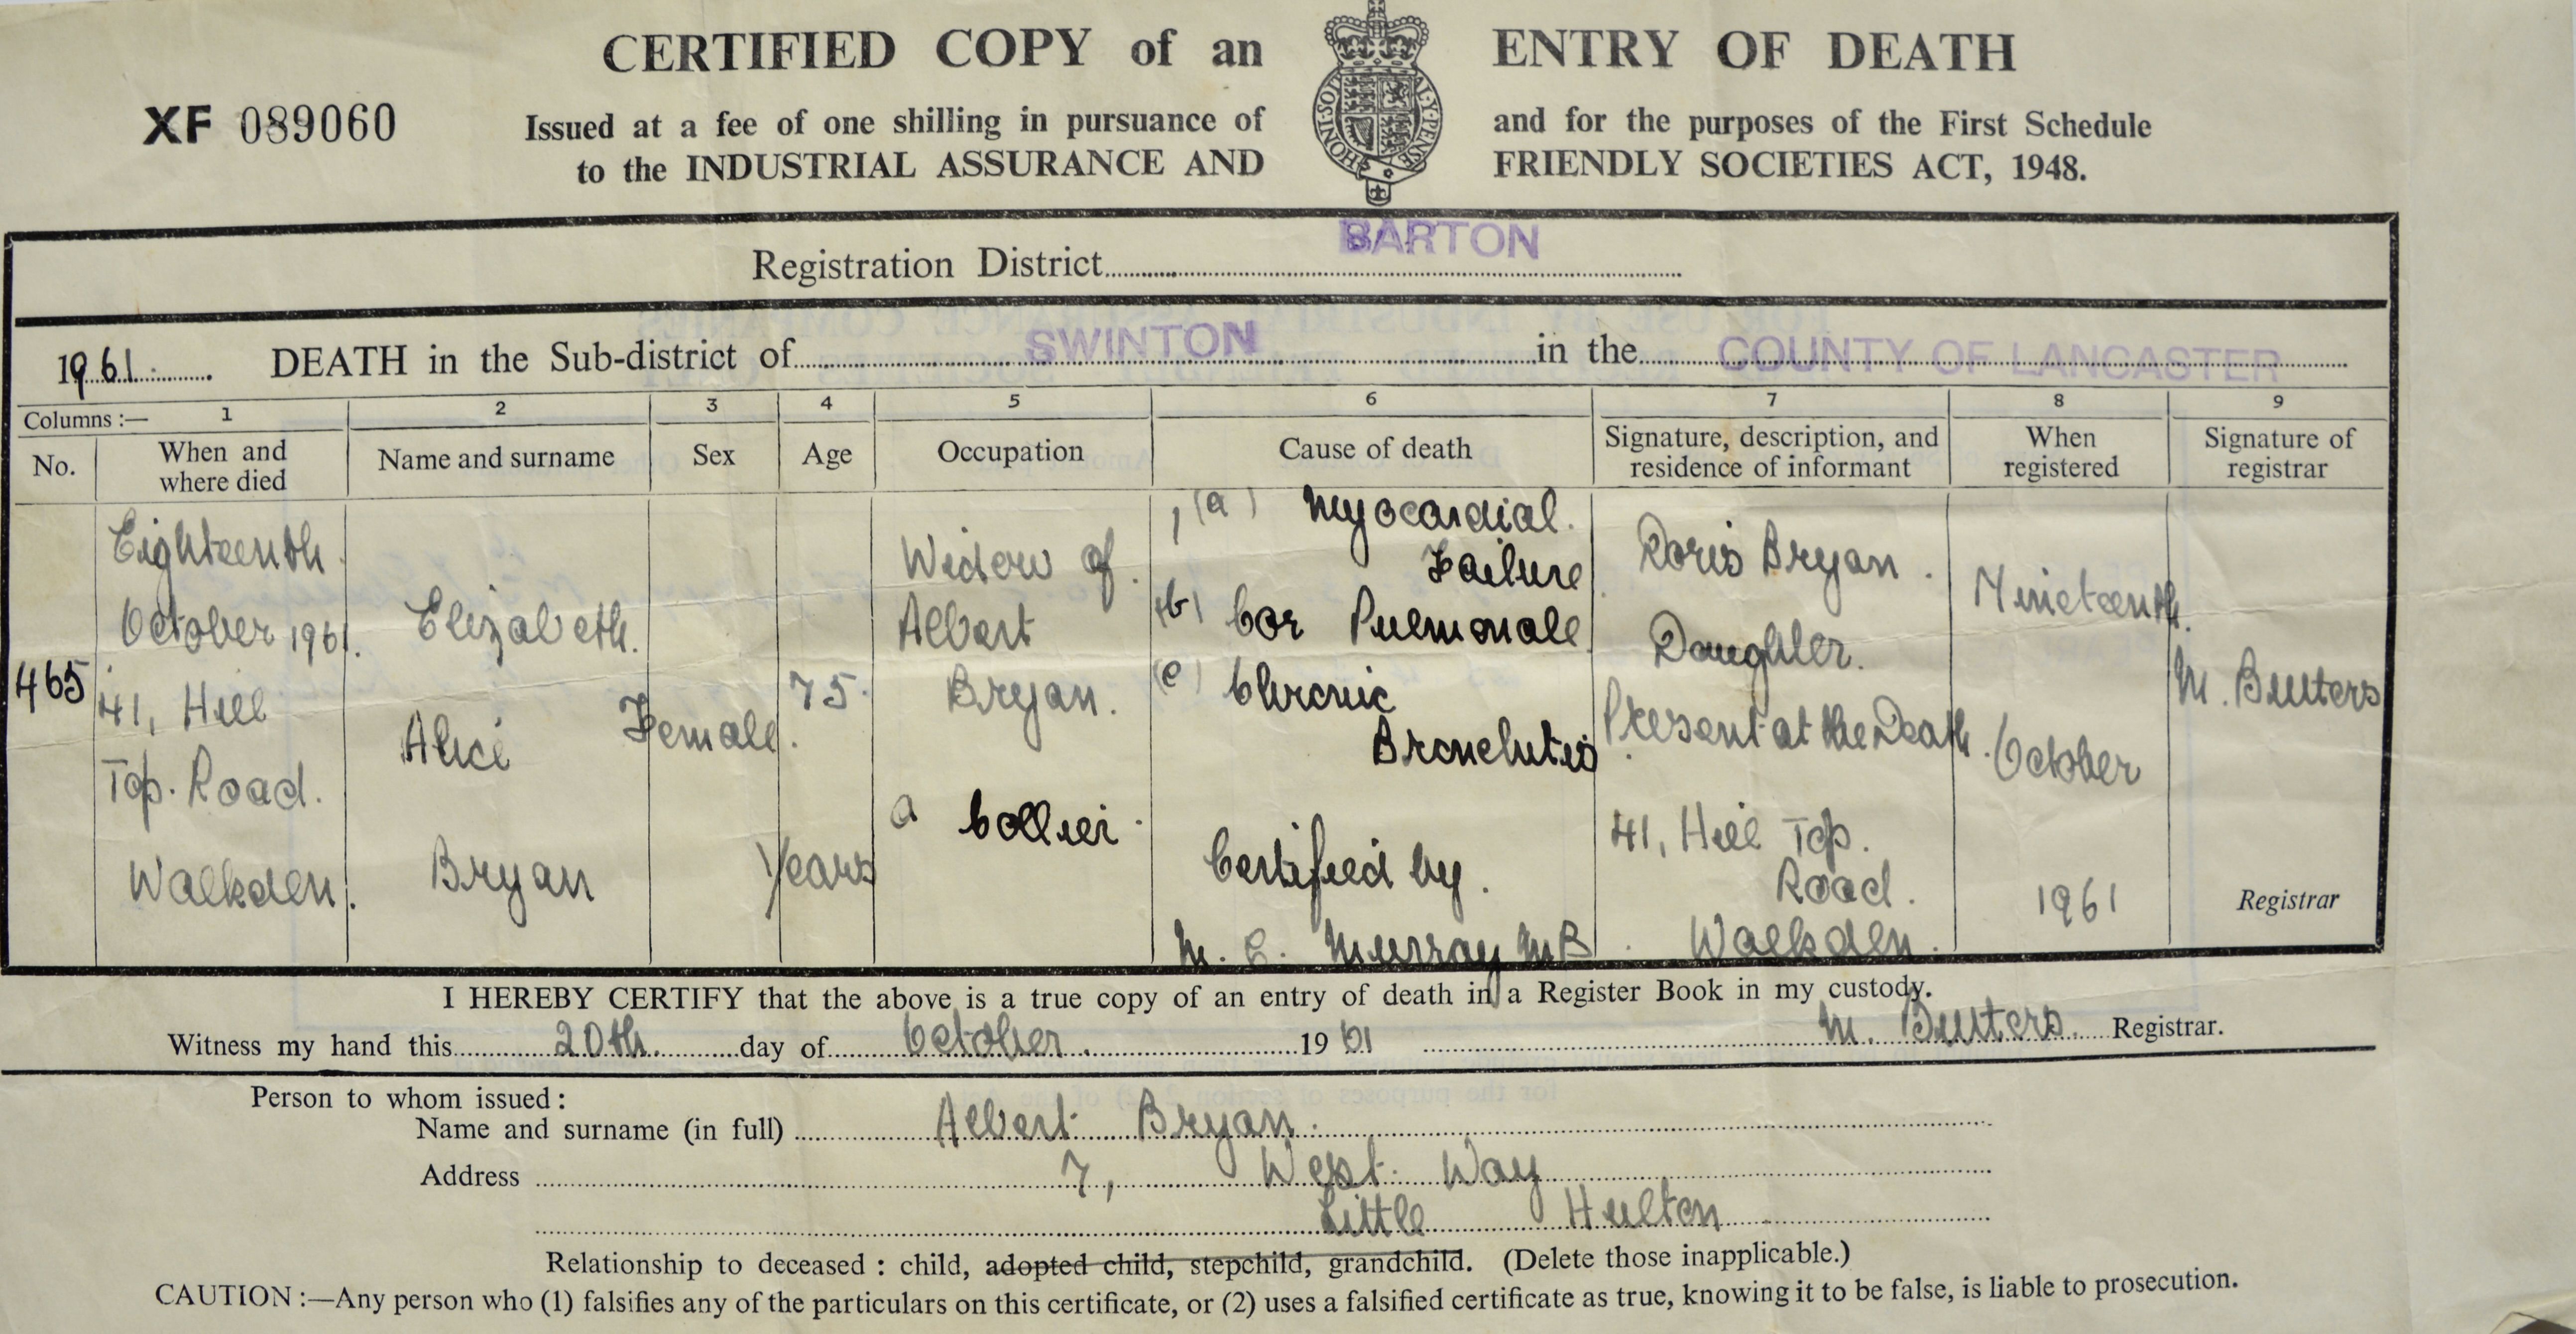 CERTIFIED COPY of an ENTRY OF DEATH
XF 089060
Issued at a fee of one shilling in pursuance of and for the purposes of the First Schedule
to the INDUSTRIAL ASSURANCE AND FRIENDLY SOCIETIES ACT, 1948.
HONI·SOI AL·Y·PENSE
Registration District BARTON
1961. DEATH in the Sub-district of SWINTON in the COUNTY OF LANCASTER
Columns :— 1 2 3 4 5 6 7 8 9
No.
When and
where died
Name and surname
Sex
Age
Occupation
Cause of death
Signature, description, and
residence of informant
When
registered
Signature of
registrar
465
Eighteenth
October 1961.
41, Hill
Top. Road.
Walkden.
Elizabeth.
Alice
Bryan
Female.
75.
Years
Widow of.
Albert
Bryan.
a Collier.
1(a) Myocardial.
Failure
(b) Cor Pulmonale
(c) Chronic
Bronchitis
Certified by.
M. C. Murray MB
Doris Bryan.
Daughter.
Present at the Death.
41, Hill Top.
Road.
Walkden.
Nineteenth.
October
1961
M. Butters
Registrar
I HEREBY CERTIFY that the above is a true copy of an entry of death in a Register Book in my custody.
Witness my hand this 20th. day of October. 1961 M. Butters. Registrar.
Person to whom issued :
Name and surname (in full) Albert Bryan.
Address 7, West Way
Little Hulton
Relationship to deceased : child, adopted child, stepchild, grandchild. (Delete those inapplicable.)
CAUTION :—Any person who (1) falsifies any of the particulars on this certificate, or (2) uses a falsified certificate as true, knowing it to be false, is liable to prosecution.